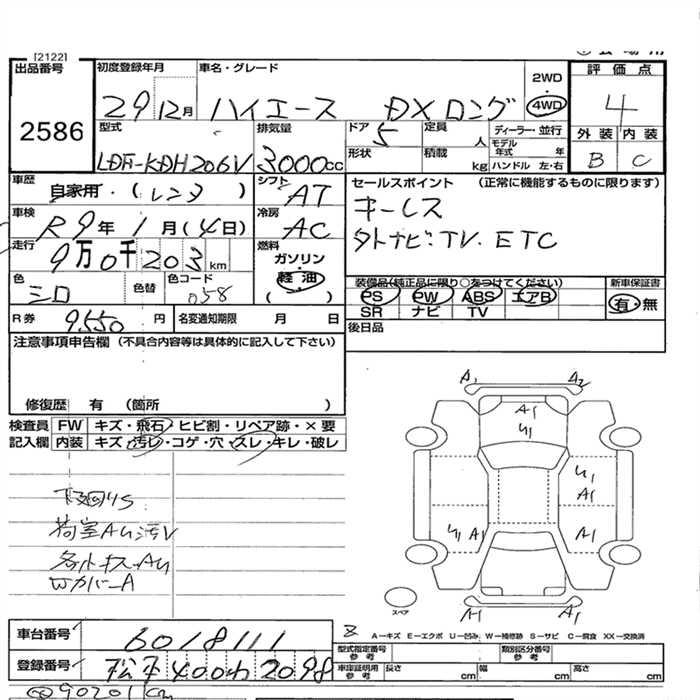 [2122]
出品番号
2586
初度登録年月
29 12月
車名・グレード
ハイエース DXロング
2WD
4WD
評価点
4
外装 内装
B C
型式
LDF-KDH206V
排気量
3000cc
ドア
5
定員
人
形状
積載
kg
ディーラー・並行
モデル年式 年
ハンドル 左・右
車歴
自家用・(レンタ)
シフト
AT
車検
R9年1月(4日)
冷房
AC
走行
9万0千203km
燃料
ガソリン・
軽油
( )
色
シロ
色替
色コード
058
R券
9,550円
名変通知期限 月 日
セールスポイント (正常に機能するものに限ります)
キーレス
外ナビ・TV・ETC
装備品(純正品に限り○をつけてください)
PS PW ABS エアB
SR ナビ TV
新車保証書
有・無
後日品
注意事項申告欄(不具合内容等は具体的に記入して下さい)
修復歴 有 (箇所 )
検査員記入欄
FW キズ・飛石・ヒビ割・リペア跡・×要
内装 キズ・汚レ・コゲ・穴・スレ・キレ・破レ
下回りS
荷室AU汚レ
各外キズ・AU
A1 A2
A1
U1
U1
A1
U1 A1
A1
A1 A1
スペア
A−キズ E−エクボ U−凹み W−補修跡 S−サビ C−腐食 XX−交換済
車台番号
6018111
登録番号
松戸400わ2098
型式指定番号参考
類別区分番号参考
車庫証明用参考
長さ cm
幅 cm
高さ cm